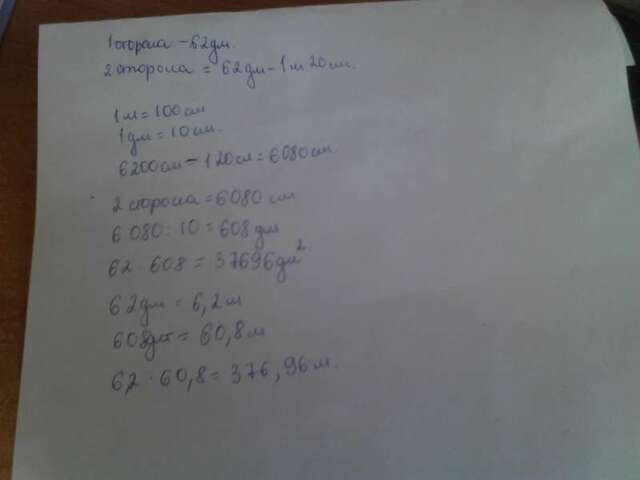 1 сторона - 62 дм.
2 сторона = 62 дм - 1 м 20 см.
1 м = 100 см
1 дм = 10 см.
6200 см - 120 см = 6080 см
2 сторона = 6080 см
6 080 : 10 = 608 дм
62 · 608 = 37696 дм².
62 дм = 6,2 м
608 дм = 60,8 м
6,2 · 60,8 = 376,96 м.